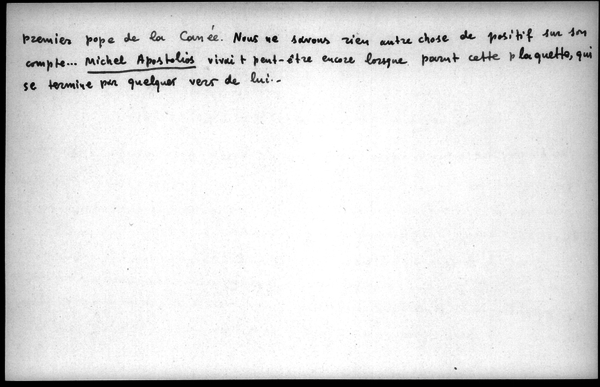 premier pope de la Canée. Nous ne savons rien autre chose de positif sur son
compte... Michel Apostolios vivait peut-être encore lorsque parut cette plaquette, qui
se termine par quelques vers de lui.-